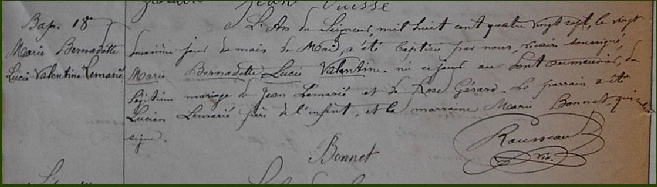 Jean Vuisse
Bap. 18
Marie Bernadette
Lucie Valentine Lemarié
L'An du Seigneur, mil huit cent quatre vingt sept, le vingt
deuxième jour du mois de a été baptisée par nous, vicaire soussigné,
Marie Bernadette Lucie Valentine née ce jour au Pont du
légitime mariage de Jean Lemarié et de Rose Gérard. Le parrain a été
Lucien Lemarié frère de l'enfant, et la marraine Marie Bonnet, qui
signe.
Bonnet
Rousseau
vic.